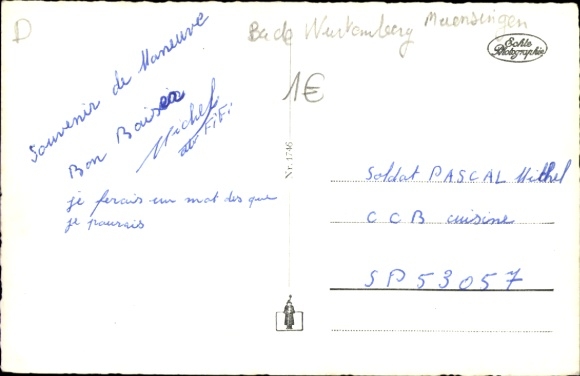 D
Bade Wurtemberg Muensingen
Echte Photographie
1€
Souvenir de Maneuve
Bon Baiser
Michel
au FiFi
je ferais un mot des que
je pourais
Nr. 1746
Soldat PASCAL Michel
CCB cuisine
SP 53057